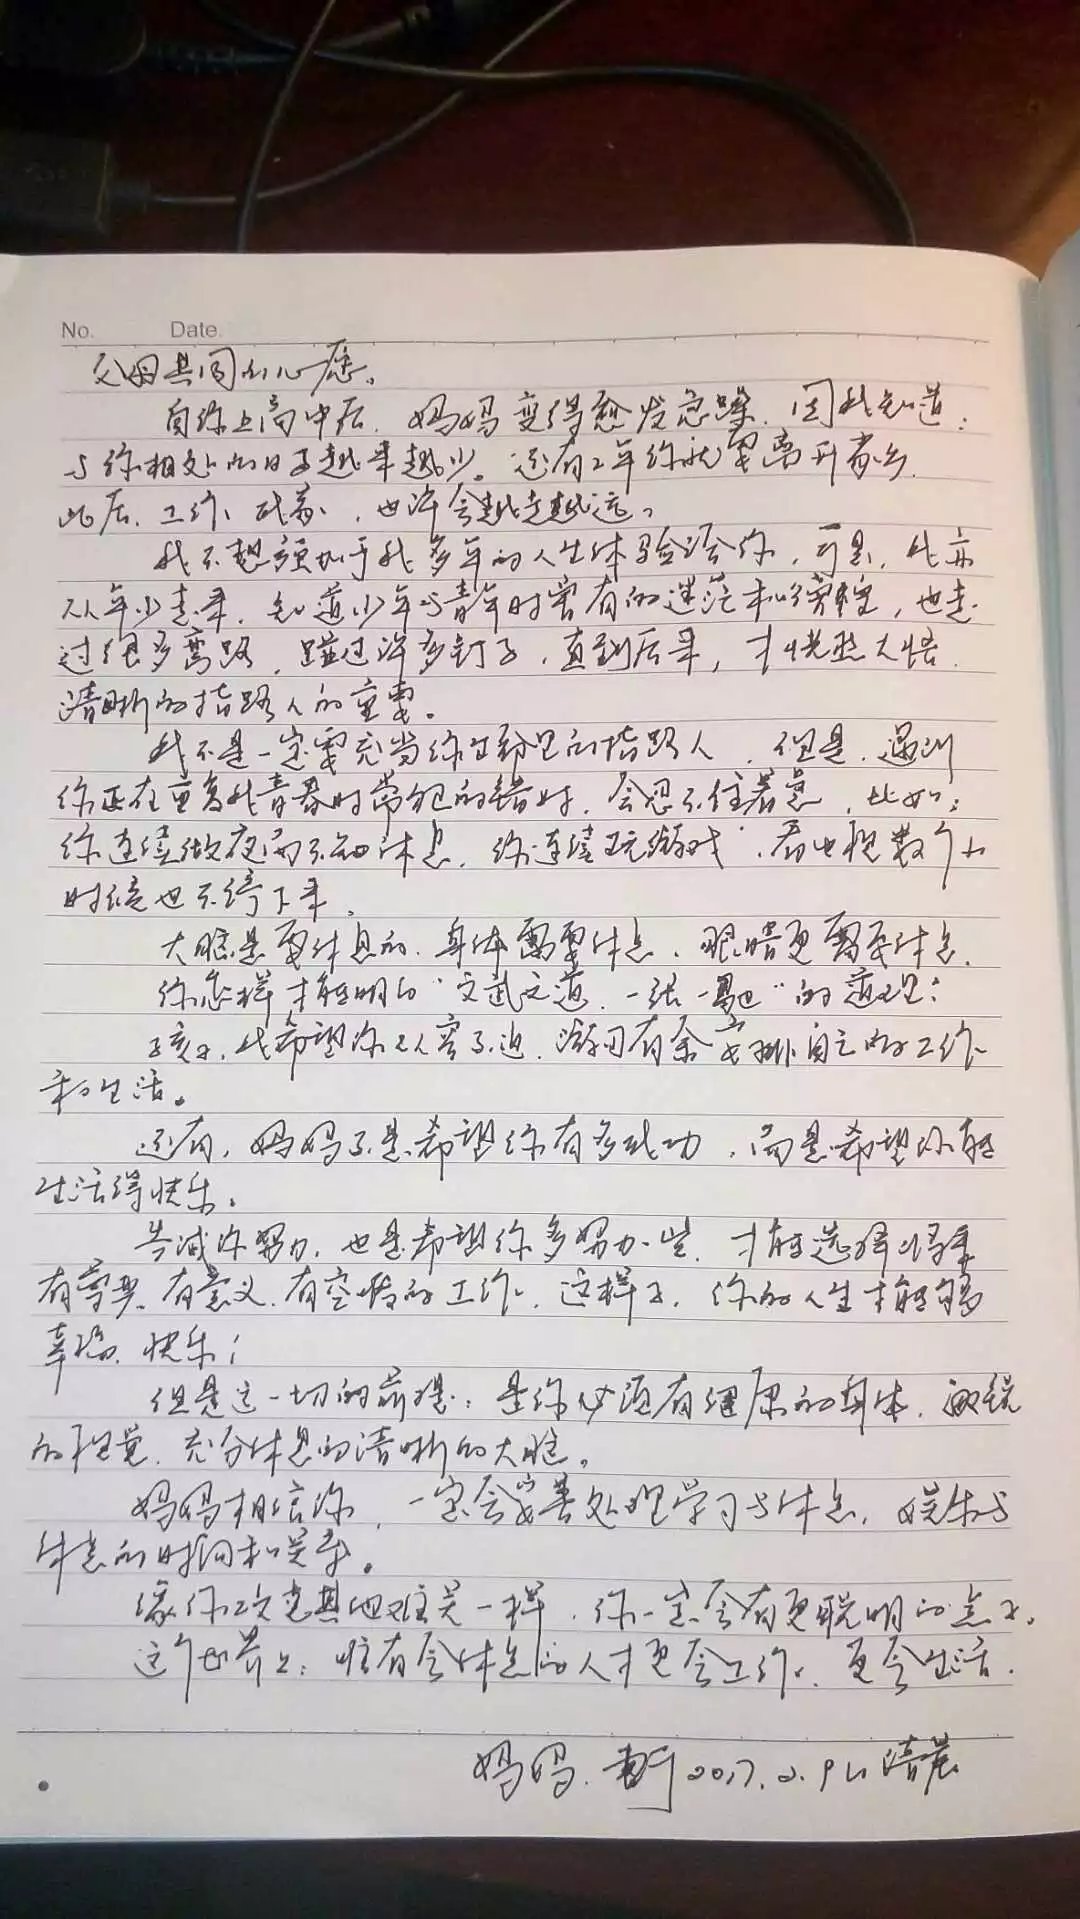 No. Date.
父母共同的心愿。
自你上高中后,妈妈变得愈发急躁,因我知道:
与你相处的日子越来越少。还有2年你就要离开家乡
此后、工作、成家、也许会越走越远。
我不想强加于我多年的人生体验给你,可是,我亦
从年少走来,知道少年与青年时曾有的迷茫和彷徨,也走
过很多弯路,碰过许多钉子,直到后来,才恍然大悟
清晰的指路人的重要。
我不是一定要充当你生命里的指路人,但是,遇到
你正在重复我青春时常犯的错时,会忍不住着急,比如:
你连续做夜而不知休息,你连续玩游戏、看电视数个小
时后也不停下来,
大脑是要休息的、身体需要休息、眼睛更需要休息
你怎样才能明白"文武之道,一张一弛"的道理;
孩子,我希望你从容不迫、游刃有余安排自己的工作
和生活。
还有,妈妈不是希望你有多成功,而是希望你能
生活得快乐。
告诫你努力,也是希望你多努力一些,才能选择将来
有尊严、有意义、有空暇的工作,这样子,你的人生才能够
幸福、快乐;
但是这一切的前提:是你必须有健康的身体、敏锐
的视觉、充分休息的清晰的大脑。
妈妈相信你,一定会妥善处理学习与休息,娱乐与
休息的时间和关系。
像你攻克其他难关一样,你一定会有更聪明的点子。
这个世界上:唯有会休息的人才更会工作、更会生活.
妈妈. 2017.2.9 清晨